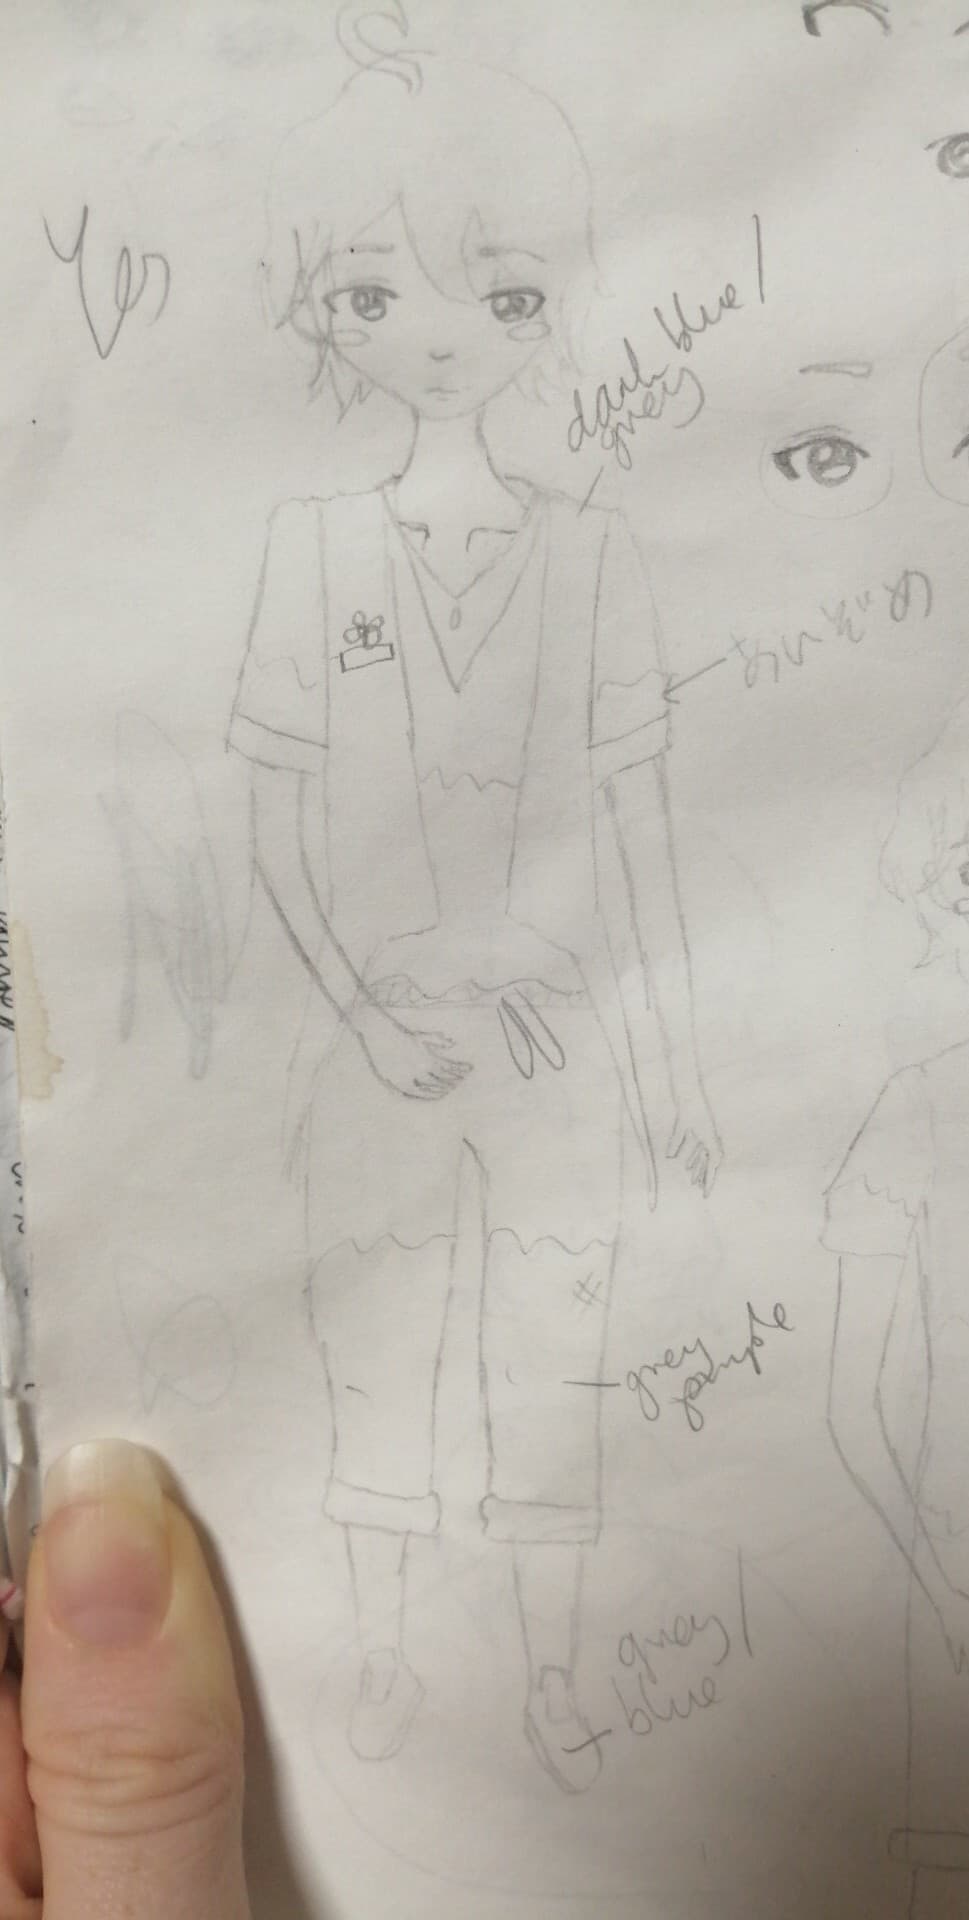 Yes
dark blue/
grey
あいぞめ
grey
purple
grey/
blue